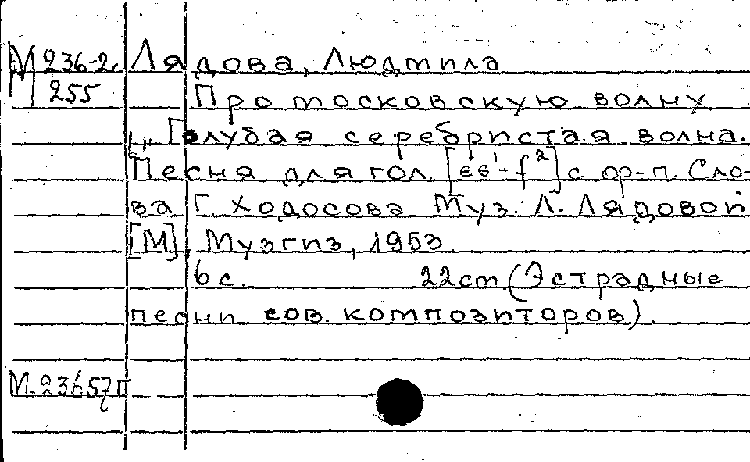 М 236-2 Лядова, Людмила
255 Про московскую волну
„Голубая серебристая волна.
Песня для гол. [es¹-f²] с ф-п. Сло-
ва Г. Ходосова Муз. Л. Лядовой
[М], Музгиз, 1953.
6 с. 22 cm (Эстрадные
песни сов. композиторов).
М.23657